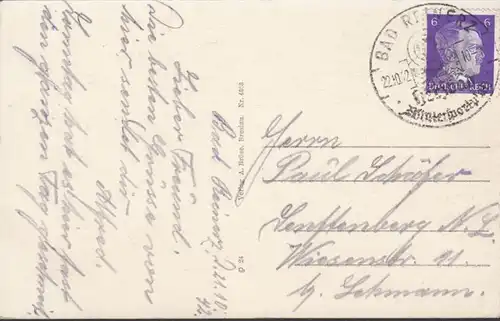 Bad Reinerz, d. 21.10.42.
Lieber Freund.
Die besten Grüsse von
hier sendet dir
Alfred.
Sonntag hat es hier fast
den ganzen Tag geschneit.
Verlag A. Rehn, Dresden. Nr. 
Q 24
BAD REINERZ
22.10.42
Wintersport
6 6
DEUTSCHES REICH
Herrn
Paul Schäfer
Senftenberg N.L.
Wiesenstr. 11.
b. Lehmann.